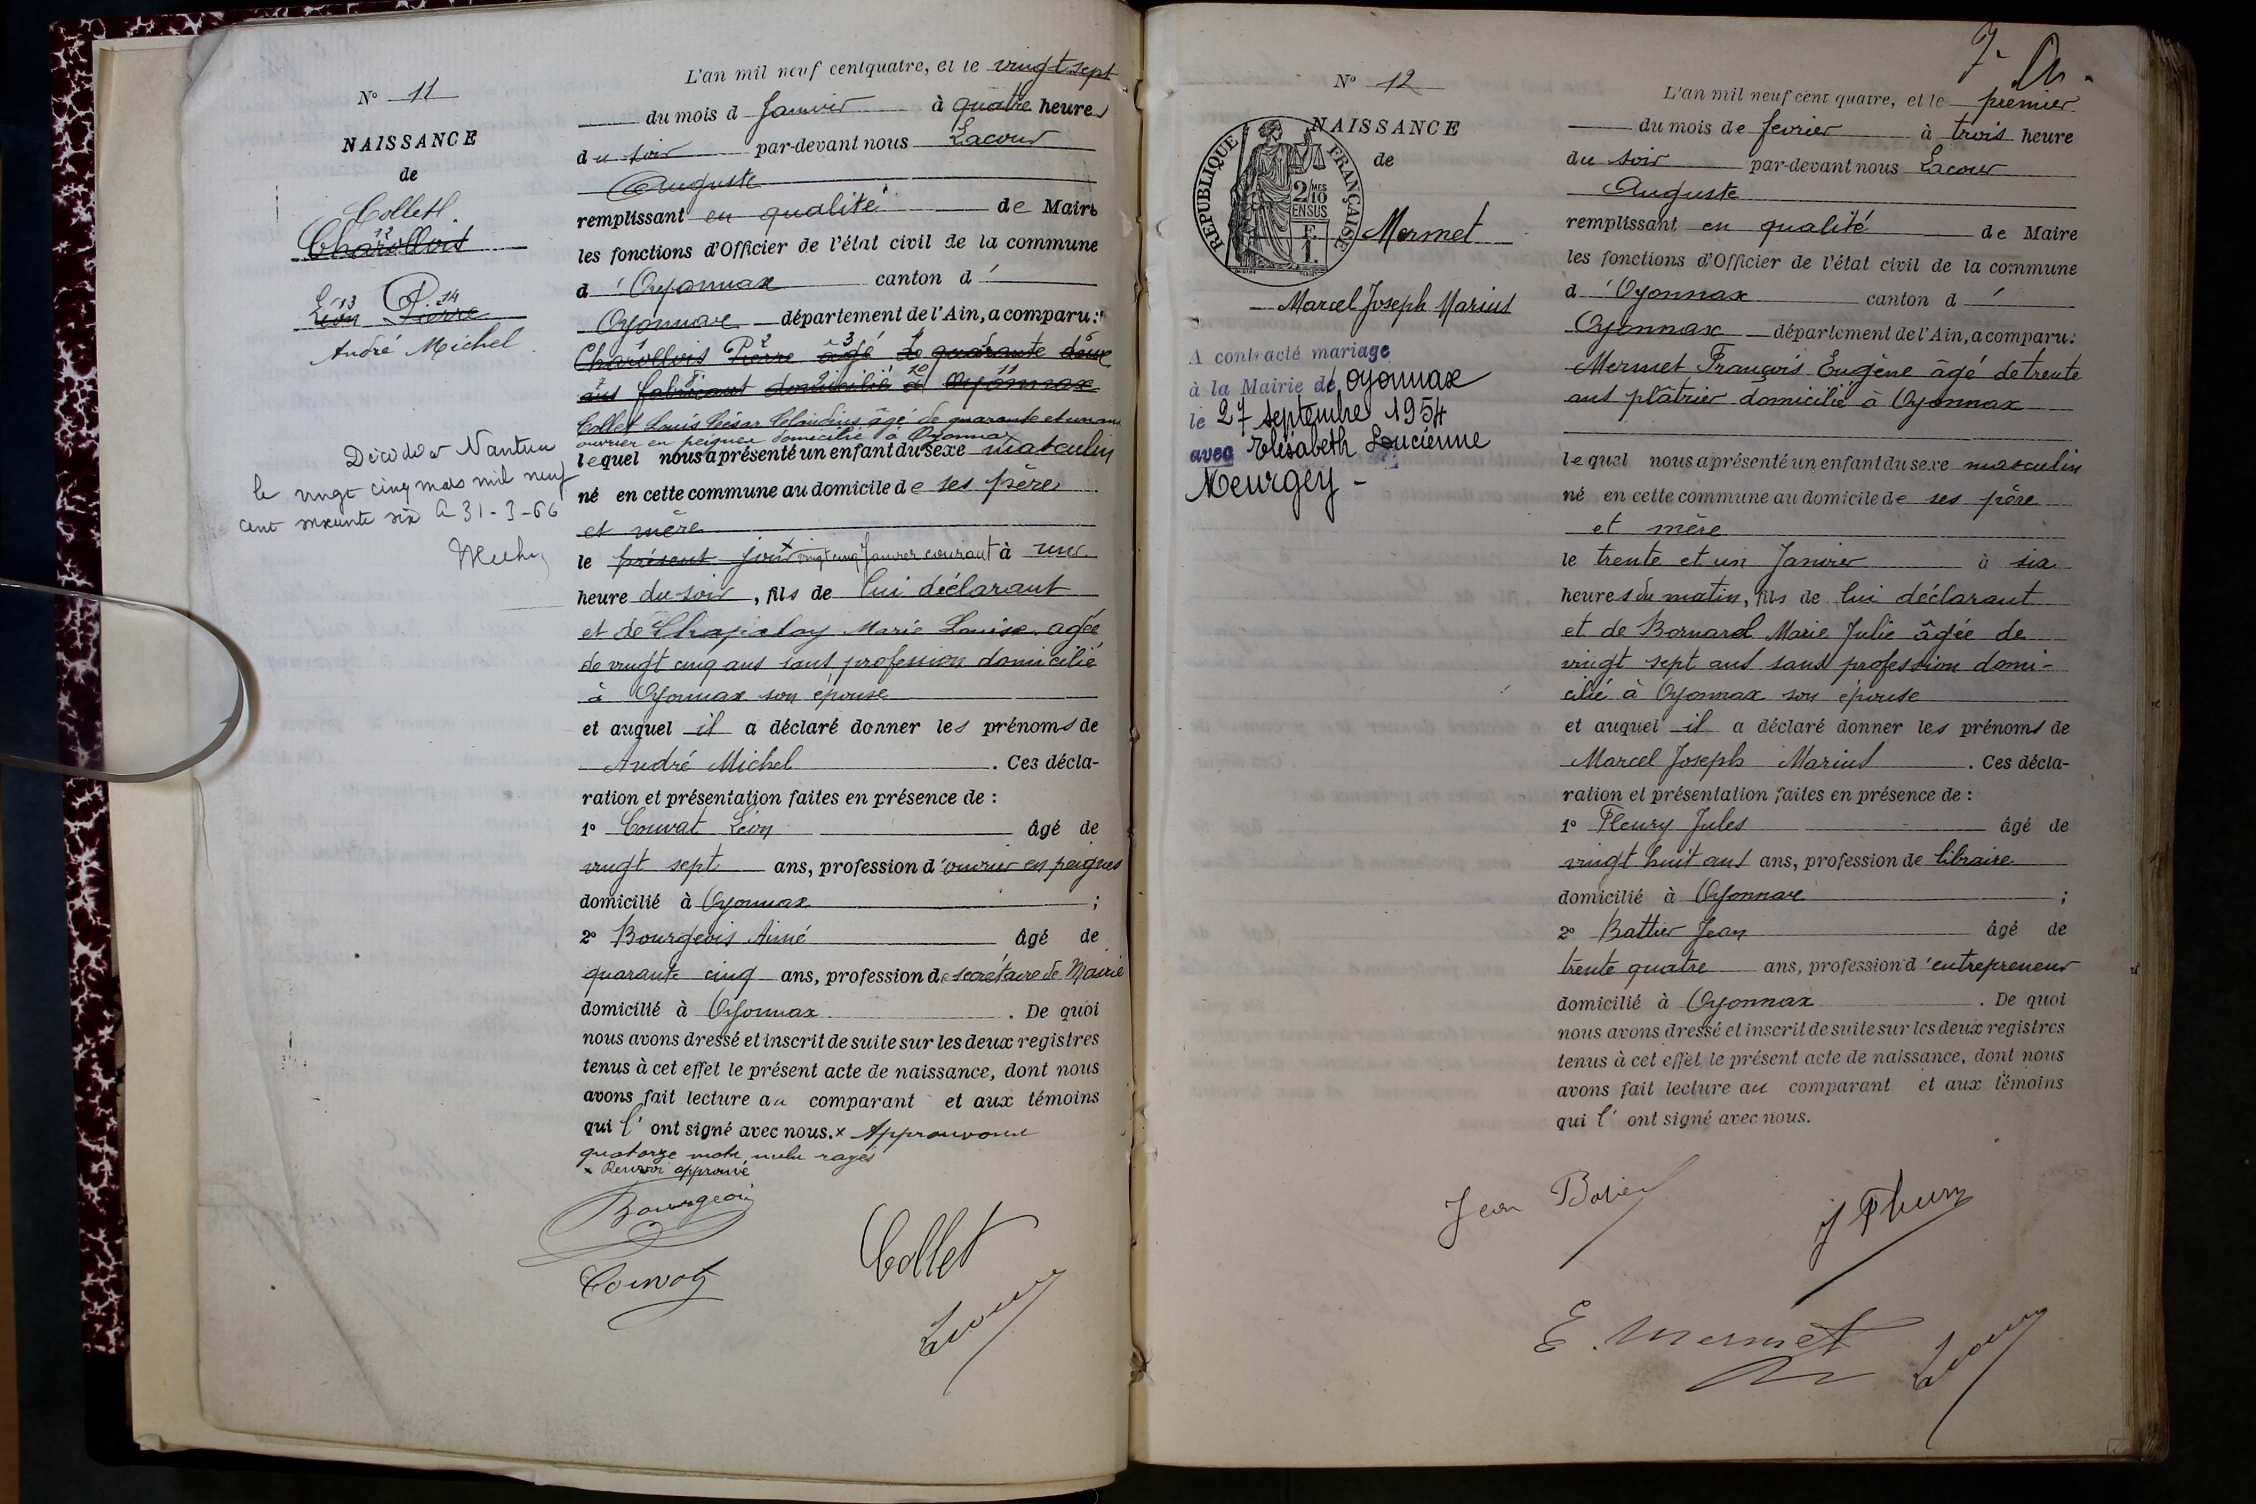 N° 11
NAISSANCE
de
Collet
Charollois
13 14
Léon Pierre
André Michel
Décédé à Nantua
le vingt cinq mars mil neuf
cent soixante six Le 31-3-66
L'an mil neuf cent quatre, et le vingt sept
du mois d Janvier à quatre heures
du soir par-devant nous Lacour
Auguste
remplissant en qualité de Maire
les fonctions d'Officier de l'état civil de la commune
d'Oyonnax canton d'
Oyonnax département de l'Ain, a comparu:
Charollois Pierre âgé de quarante deux
ans fabricant domicilié à Oyonnax
Collet Louis César Claudius âgé de quarante et un ans
ouvrier en peignes domicilié à Oyonnax
lequel nous a présenté un enfant du sexe masculin
né en cette commune au domicile de ses père
et mère
le présent jour x vingt cinq Janvier courant à une
heure du soir, fils de lui déclarant
et de Marie Louise âgée
de vingt cinq ans sans profession domicilié
à Oyonnax son épouse
et auquel il a déclaré donner les prénoms de
André Michel. Ces décla-
ration et présentation faites en présence de :
1° Convat Léon âgé de
vingt sept ans, profession d'ouvrier en peignes
domicilié à Oyonnax ;
2° Bourgeois Aimé âgé de
quarante cinq ans, profession de secrétaire de Mairie
domicilié à Oyonnax. De quoi
nous avons dressé et inscrit de suite sur les deux registres
tenus à cet effet le présent acte de naissance, dont nous
avons fait lecture au comparant et aux témoins
qui l'ont signé avec nous. x Approuvons
quatorze mots nuls rayés
x Renvoi approuvé
Bourgeois
Collet
Convat
Lacour
N° 12
NAISSANCE
de
RÉPUBLIQUE FRANÇAISE
2/10 MES
EN SUS
Mermet
Marcel Joseph Marius
A contracté mariage
à la Mairie de Oyonnax
le 27 septembre 1954
avec Elisabeth Lucienne
Meurgey -
L'an mil neuf cent quatre, et le premier
du mois de fevrier à trois heure
du soir par-devant nous Lacour
Auguste
remplissant en qualité de Maire
les fonctions d'Officier de l'état civil de la commune
d'Oyonnax canton d'
Oyonnax département de l'Ain, a comparu:
Mermet François Eugène âgé de trente
ans plâtrier domicilié à Oyonnax
lequel nous a présenté un enfant du sexe masculin
né en cette commune au domicile de ses père
et mère
le trente et un Janvier à six
heures du matin, fils de lui déclarant
et de Bornard Marie Julie âgée de
vingt sept ans sans profession domi-
cilié à Oyonnax son épouse
et auquel il a déclaré donner les prénoms de
Marcel Joseph Marius. Ces décla-
ration et présentation faites en présence de :
1° Fleury Jules âgé de
vingt huit ans ans, profession de libraire
domicilié à Oyonnax ;
2° Battier Jean âgé de
trente quatre ans, profession d'entrepreneur
domicilié à Oyonnax. De quoi
nous avons dressé et inscrit de suite sur les deux registres
tenus à cet effet le présent acte de naissance, dont nous
avons fait lecture au comparant et aux témoins
qui l'ont signé avec nous.
Jean
J Fleury
E. Mermet
Lacour